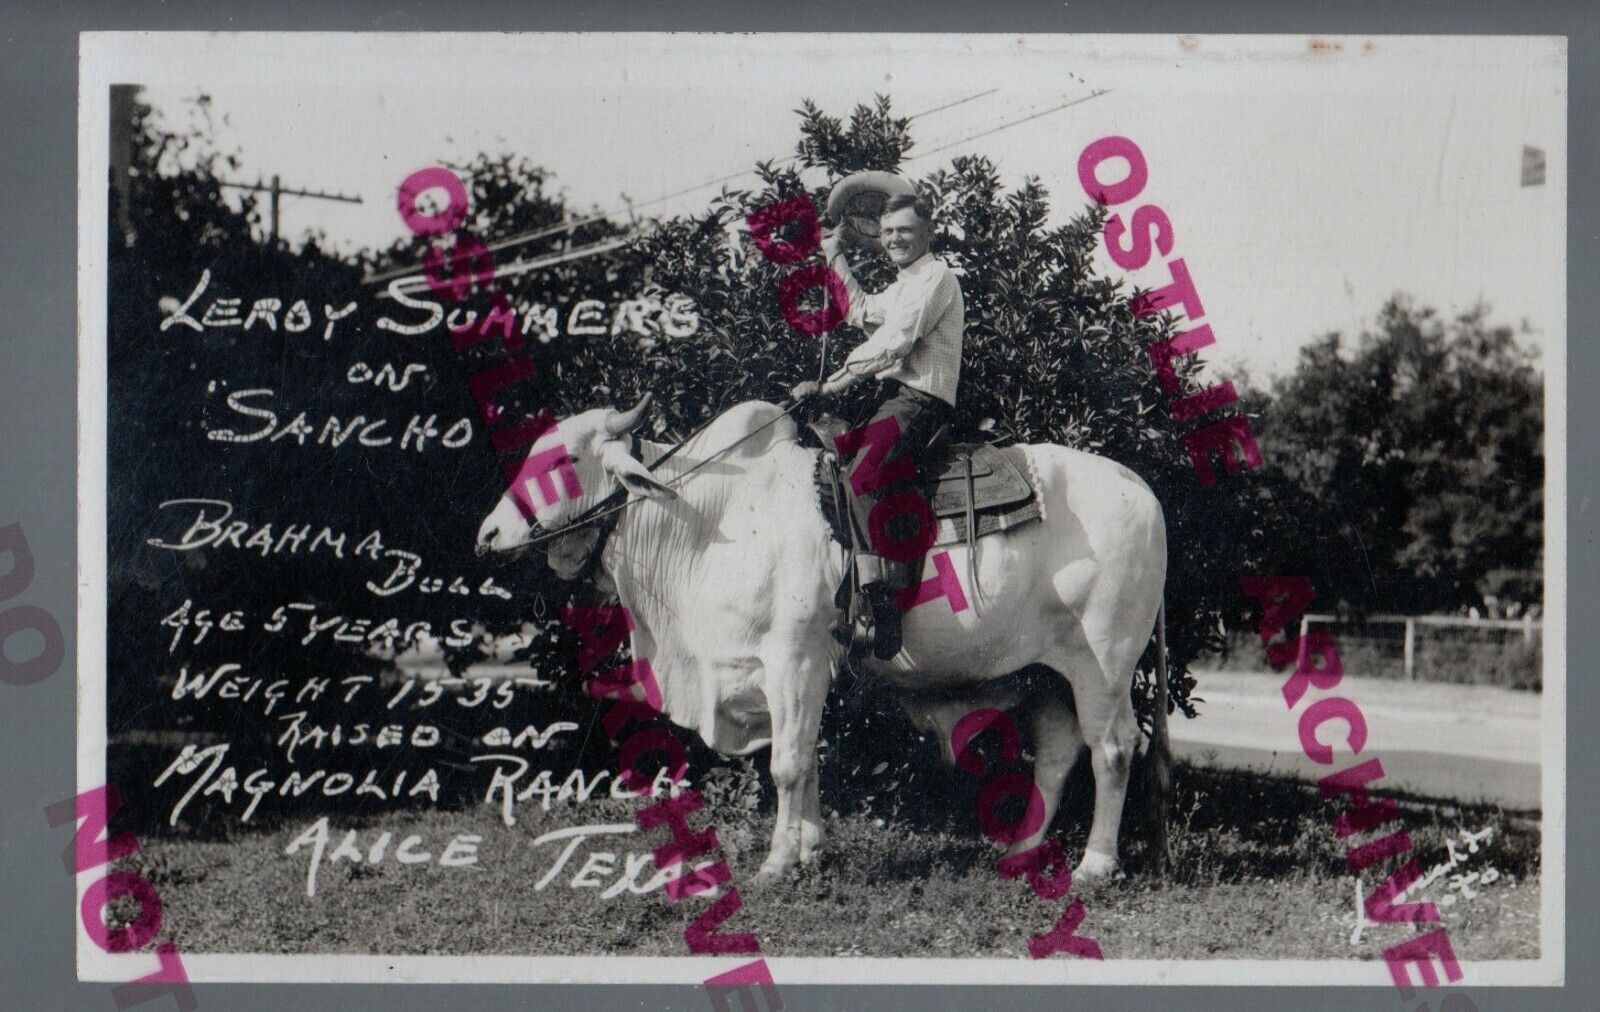 LEROY SUMMERS
ON
"SANCHO
BRAHMA
BULL
AGE 5 YEARS
WEIGHT 1535
RAISED ON
MAGNOLIA RANCH
ALICE TEXAS
OSTLIE ARCHIVE
DO NOT COPY
OSTLIE ARCHIVES
DO NOT